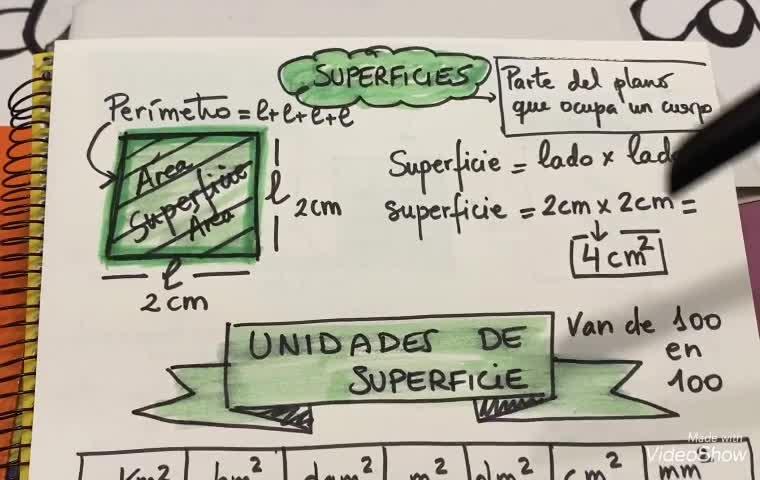 SUPERFICIES
Parte del plano
que ocupa un cuerpo
Perímetro = l+l+l+l
Área
Superficie
Área
l
2cm
l
2cm
Superficie = lado x lado
superficie = 2cm x 2cm =
4 cm²
UNIDADES DE
SUPERFICIE
Van de 100
en
100
Km² hm² dam² m² dm² cm² mm²
Made with
VideoShow